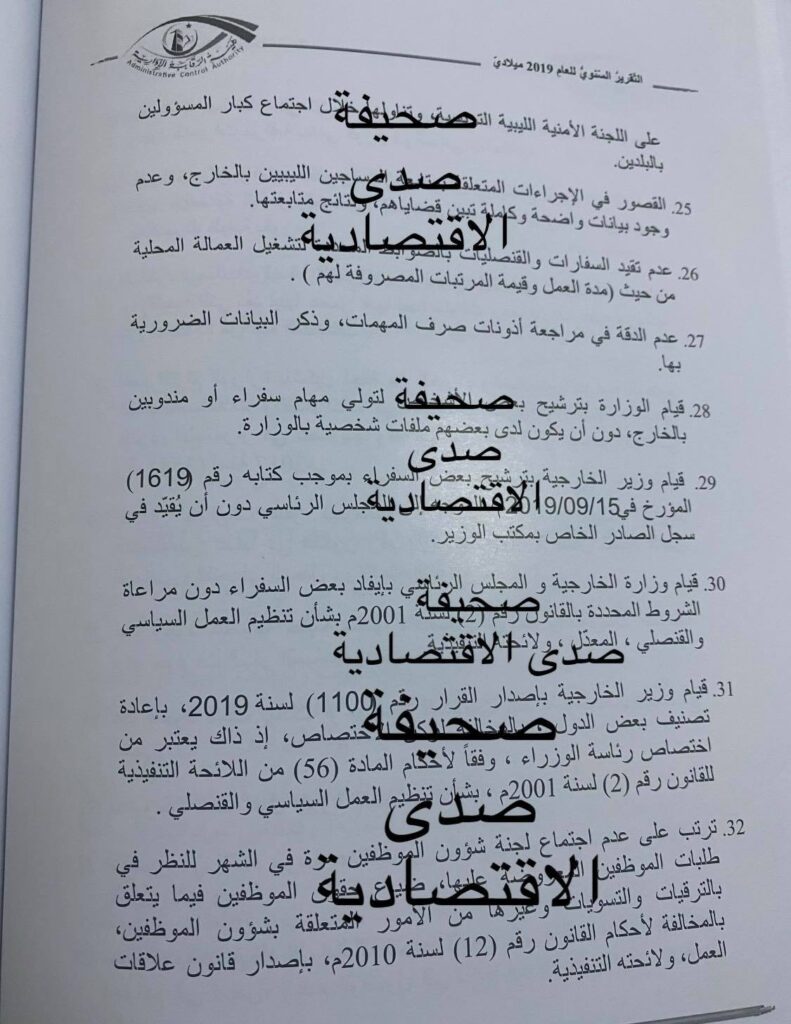 هيئة الرقابة الإدارية
Administrative Control Authority
التقرير السنوي للعام 2019 ميلادي
على اللجنة الأمنية الليبية وتناولها خلال اجتماع كبار المسؤولين
بالبلدين.
25. القصور في الإجراءات المتعلقة المساجين الليبيين بالخارج، وعدم
وجود بيانات واضحة وكاملة تبين قضاياهم، ونتائج متابعتها.
26. عدم تقيد السفارات والقنصليات بالضوابط لتشغيل العمالة المحلية
من حيث (مدة العمل وقيمة المرتبات المصروفة لهم ) .
27. عدم الدقة في مراجعة أذونات صرف المهمات، وذكر البيانات الضرورية
بها.
28. قيام الوزارة بترشيح بعض لتولي مهام سفراء أو مندوبين
بالخارج، دون أن يكون لدى بعضهم ملفات شخصية بالوزارة.
29. قيام وزير الخارجية بترشيح بعض السفراء بموجب كتابه رقم (1619)
المؤرخ في 2019/09/15 المجلس الرئاسي دون أن يُقيّد في
سجل الصادر الخاص بمكتب الوزير.
30. قيام وزارة الخارجية و المجلس الرئاسي بإيفاد بعض السفراء دون مراعاة
الشروط المحددة بالقانون رقم (2) لسنة 2001م بشأن تنظيم العمل السياسي
والقنصلي ، المعدّل ، ولائحته التنفيذية
31. قيام وزير الخارجية بإصدار القرار رقم (1100) لسنة 2019، بإعادة
تصنيف بعض الدول ، الاختصاص، إذ ذاك يعتبر من
اختصاص رئاسة الوزراء ، وفقاً لأحكام المادة (56) من اللائحة التنفيذية
للقانون رقم (2) لسنة 2001م ، بشأن تنظيم العمل السياسي والقنصلي .
32. ترتب على عدم اجتماع لجنة شؤون الموظفين مرة في الشهر للنظر في
طلبات الموظفين المعروضة عليها، ضياع حقوق الموظفين فيما يتعلق
بالترقيات والتسويات وغيرها من الأمور المتعلقة بشؤون الموظفين،
بالمخالفة لأحكام القانون رقم (12) لسنة 2010م، بإصدار قانون علاقات
العمل، ولائحته التنفيذية.
صحيفة
صدى
الاقتصادية
صحيفة
صدى
الاقتصادية
صحيفة
صدى الاقتصادية
صحيفة
صدى
الاقتصادية